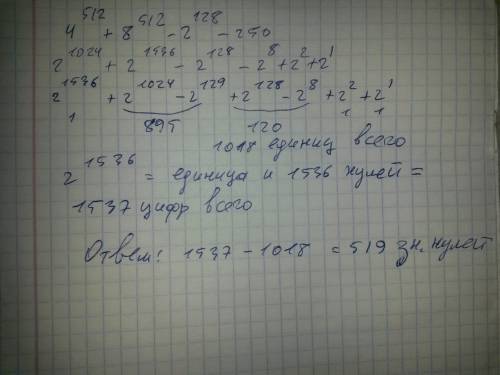 4^512 + 8^512 - 2^128 - 250
2^1024 + 2^1536 - 2^128 - 2^8 + 2^2 + 2^1
2^1536 + 2^1024 - 2^129 + 2^128 - 2^8 + 2^2 + 2^1
1 895 120 1 1
1018 единиц всего
2^1536 = единица и 1536 нулей =
1537 цифр всего
Ответ: 1537 - 1018 = 519 зн. нулей